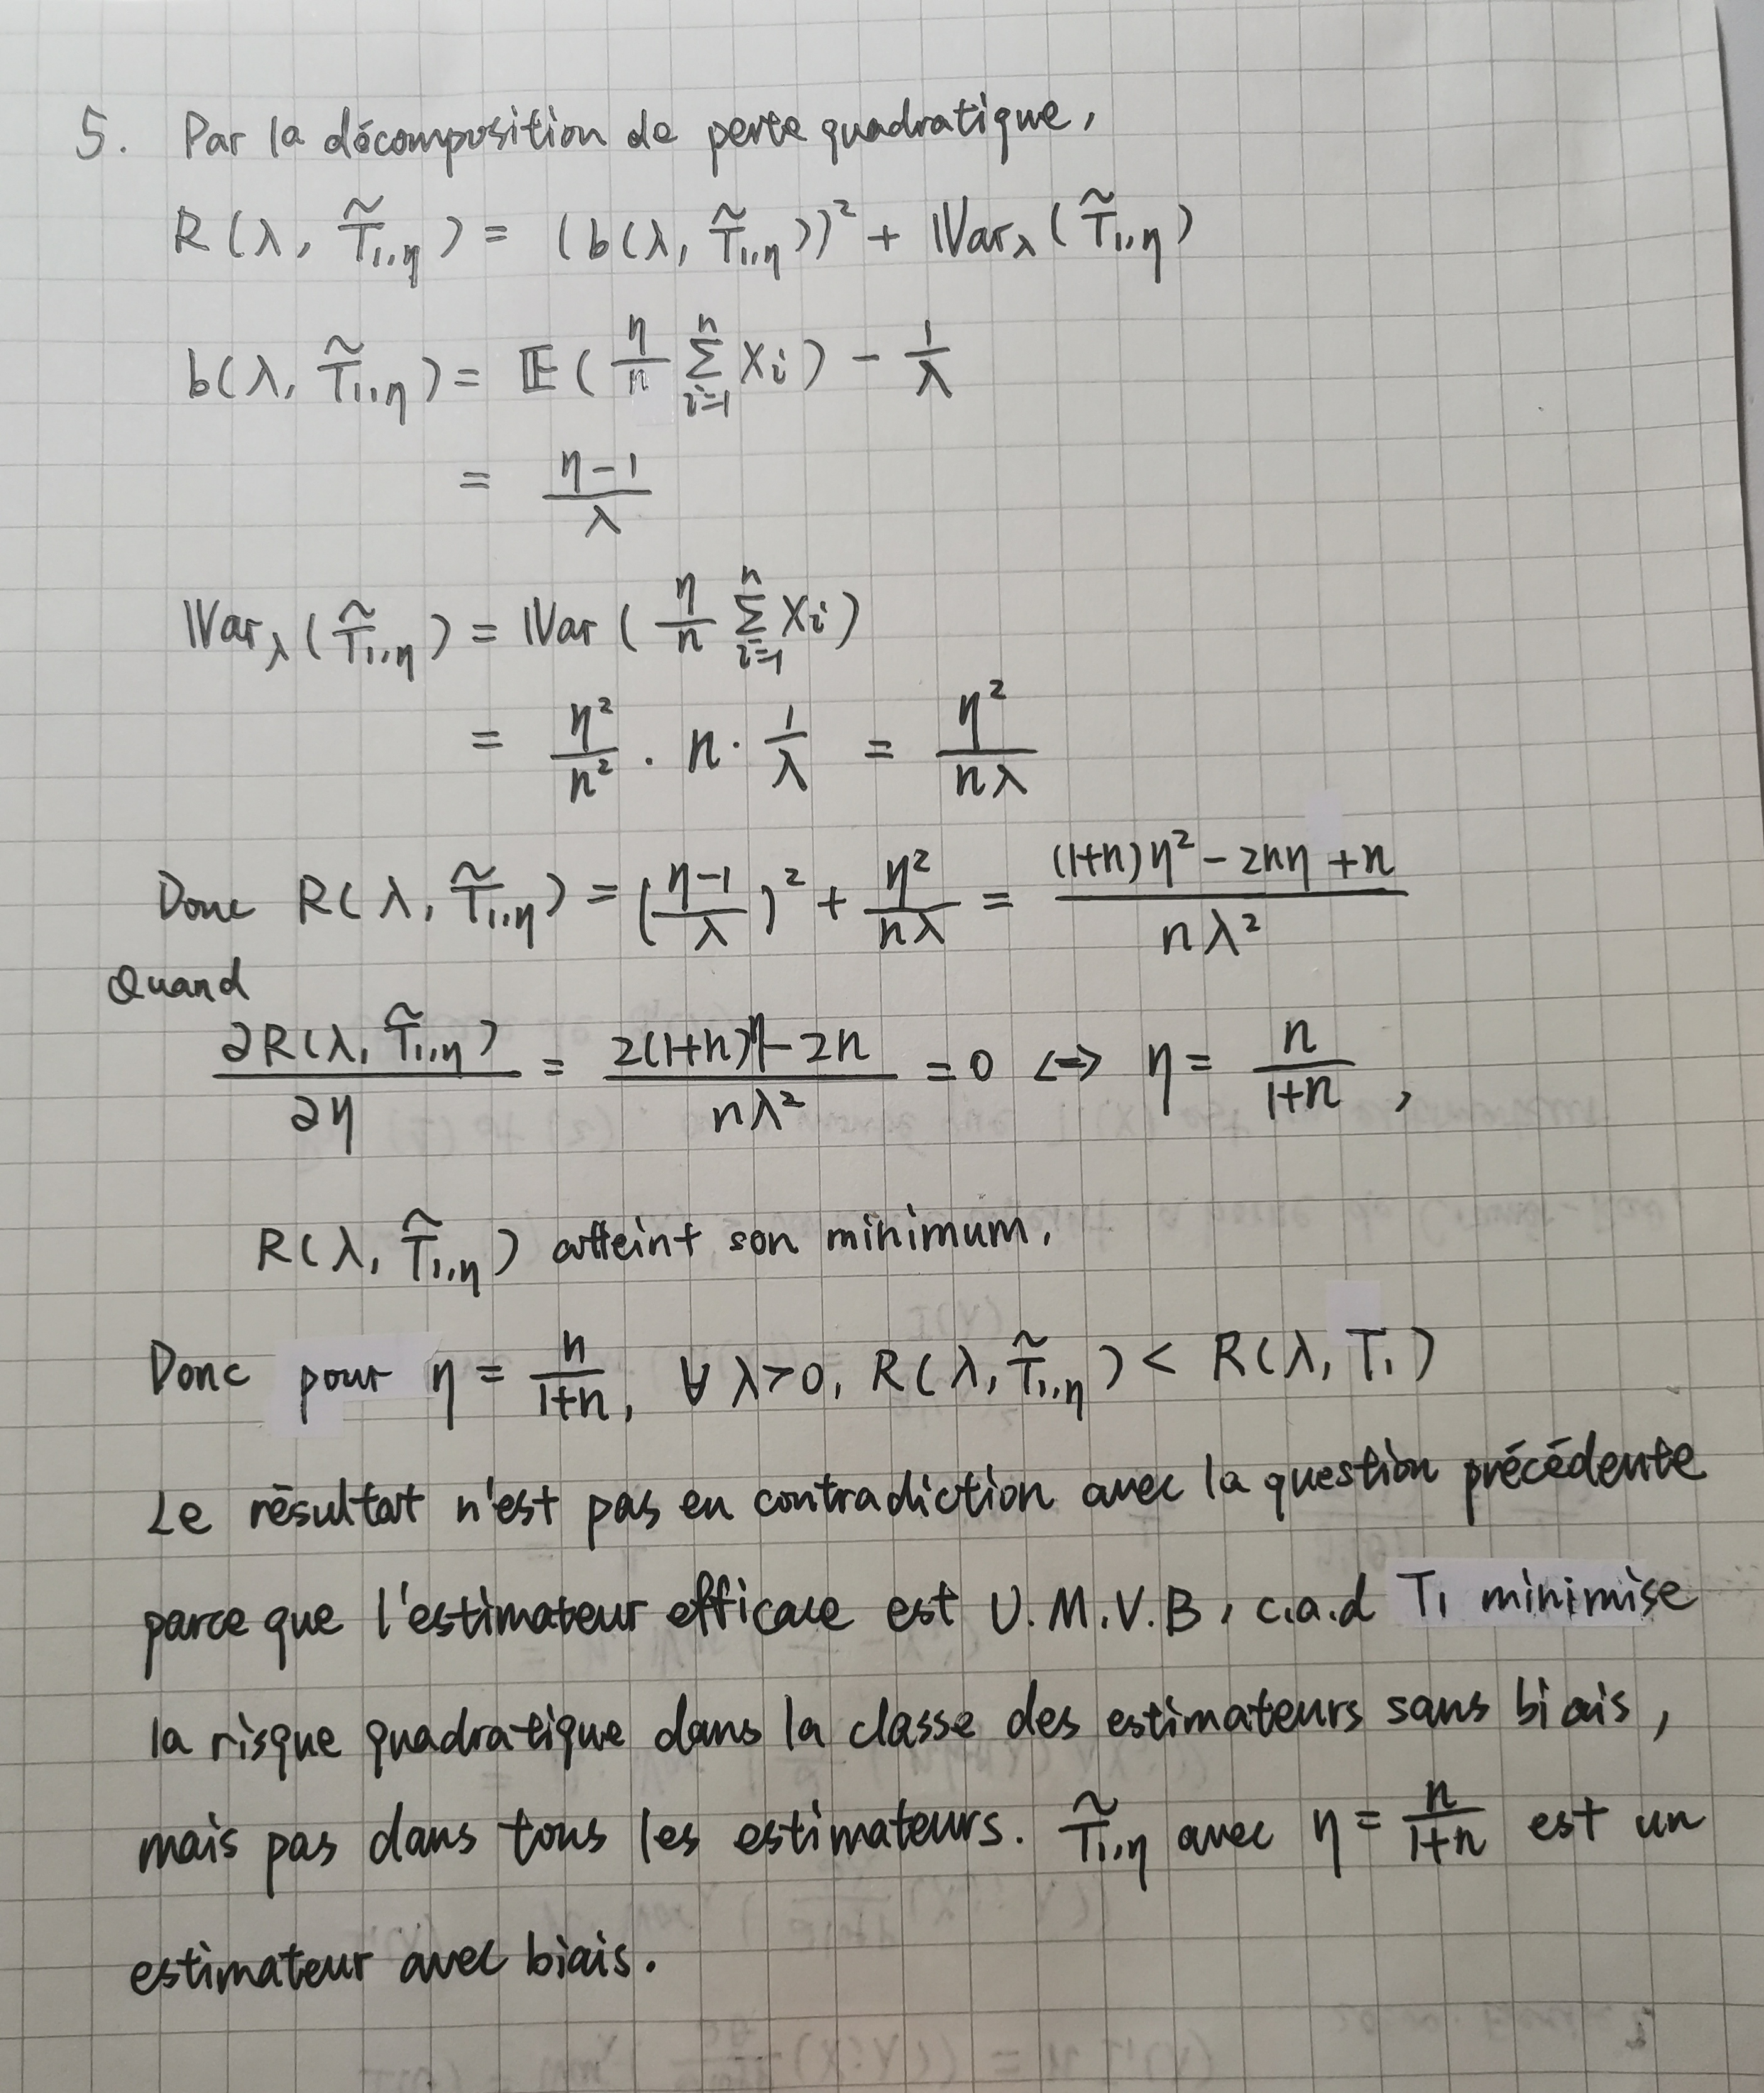 5. Par la décomposition de perte quadratique,
R(λ, T̃₁,η) = (b(λ, T̃₁,η))² + Varλ(T̃₁,η)
b(λ, T̃₁,η) = 𝔼(η/n ∑_{i=1}^{n} Xi) − 1/λ
= (η−1)/λ
Varλ(T̃₁,η) = Var(η/n ∑_{i=1}^{n} Xi)
= η²/n² · n · 1/λ = η²/(nλ)
Donc R(λ, T̃₁,η) = ((η−1)/λ)² + η²/(nλ) = ((1+n)η² − 2nη + n)/(nλ²)
Quand
∂R(λ, T̃₁,η)/∂η = (2(1+n)η − 2n)/(nλ²) = 0 ⇔ η = n/(1+n),
R(λ, T̃₁,η) atteint son minimum.
Donc pour η = n/(1+n), ∀ λ>0, R(λ, T̃₁,η) < R(λ, T₁)
Le résultat n'est pas en contradiction avec la question précédente
parce que l'estimateur efficace est U.M.V.B, c.a.d T₁ minimise
la risque quadratique dans la classe des estimateurs sans biais,
mais pas dans tous les estimateurs. T̃₁,η avec η = n/(1+n) est un
estimateur avec biais.